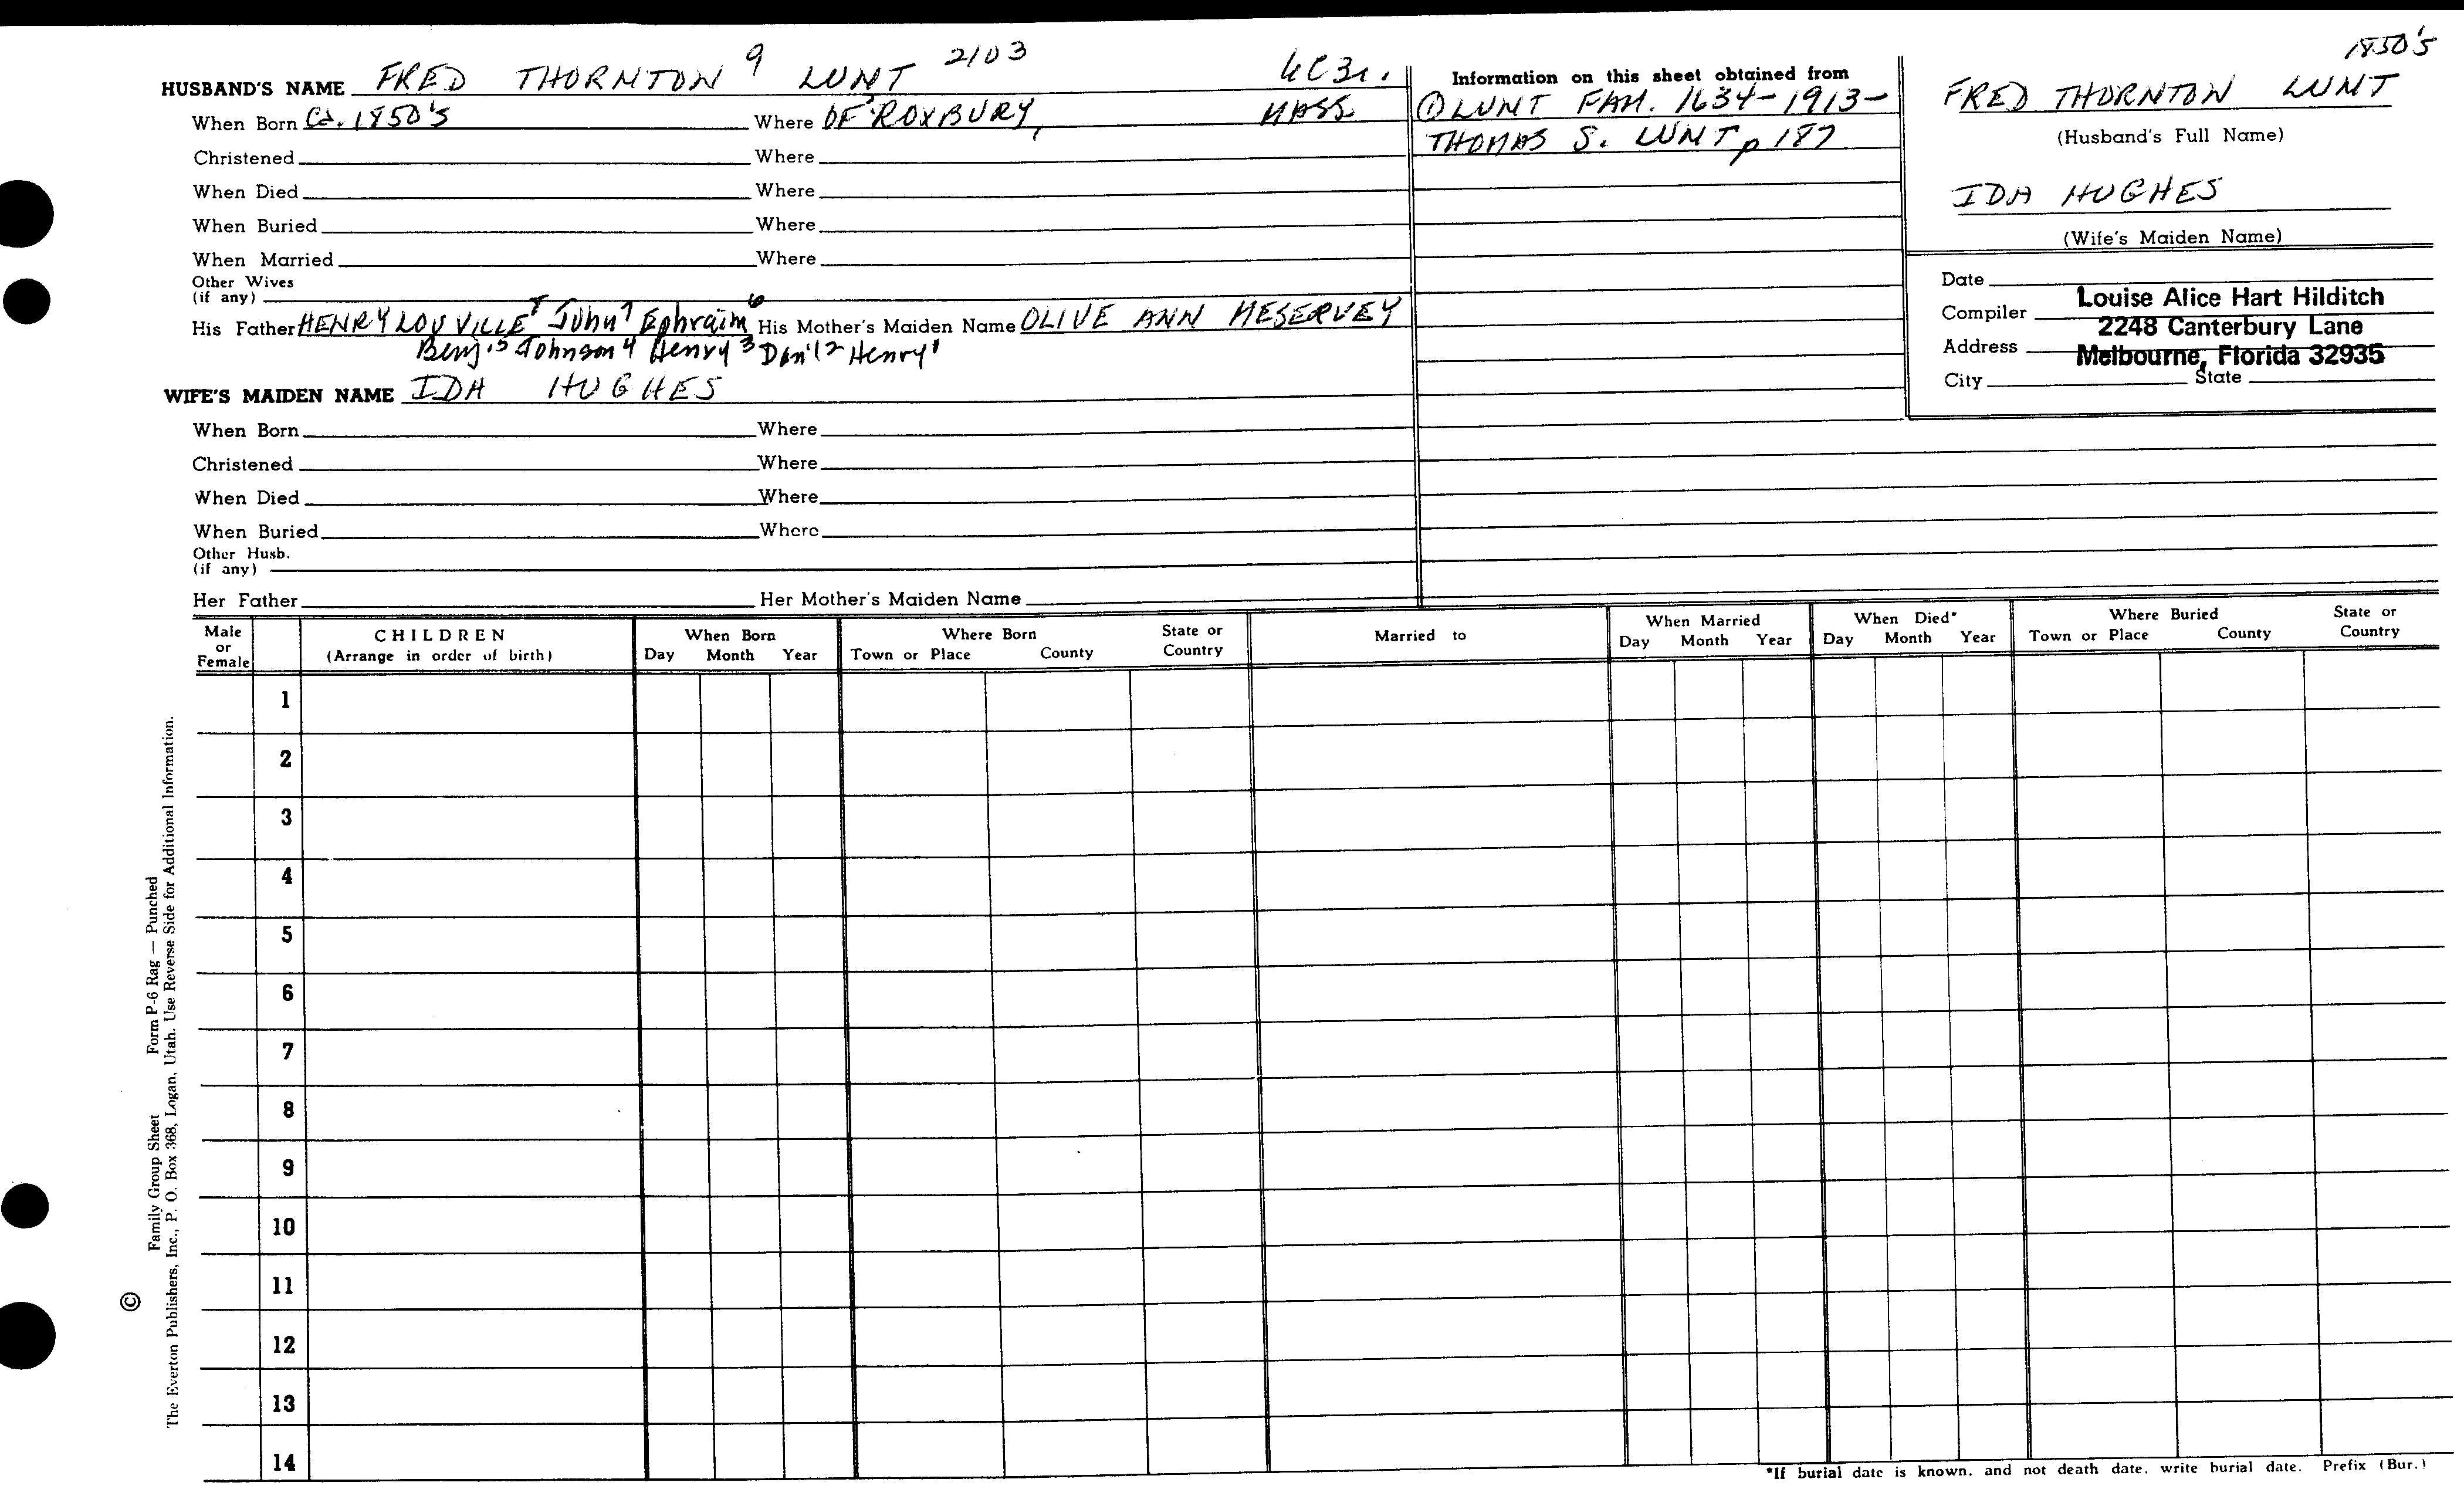 1850's
HUSBAND'S NAME FRED THORNTON 9 LUNT 2103
When Born Ca. 1850's Where OF ROXBURY, MASS.
Christened Where
When Died Where
When Buried Where
When Married Where
Other Wives
(if any)
His Father HENRY LOUVILLE 8 John 7 Ephraim 6 His Mother's Maiden Name OLIVE ANN MESERVEY
Benj. 5 Johnson 4 Henry 3 Dan'l 2 Henry 1
WIFE'S MAIDEN NAME IDA HUGHES
When Born Where
Christened Where
When Died Where
When Buried Where
Other Husb.
(if any)
Her Father Her Mother's Maiden Name
Information on this sheet obtained from
① LUNT FAM. 1634-1913-
THOMAS S. LUNT p 187
FRED THORNTON LUNT
(Husband's Full Name)
IDA HUGHES
(Wife's Maiden Name)
Date
Compiler Louise Alice Hart Hilditch
Address 2248 Canterbury Lane
Melbourne, Florida 32935
City State
Male or Female CHILDREN (Arrange in order of birth) When Born Day Month Year Where Born Town or Place County State or Country Married to When Married Day Month Year When Died* Day Month Year Where Buried Town or Place County State or Country
1
2
3
4
5
6
7
8
9
10
11
12
13
14
*If burial date is known, and not death date, write burial date. Prefix (Bur.)
© Family Group Sheet Form P-6 Rag — Punched
The Everton Publishers, Inc., P. O. Box 368, Logan, Utah. Use Reverse Side for Additional Information.